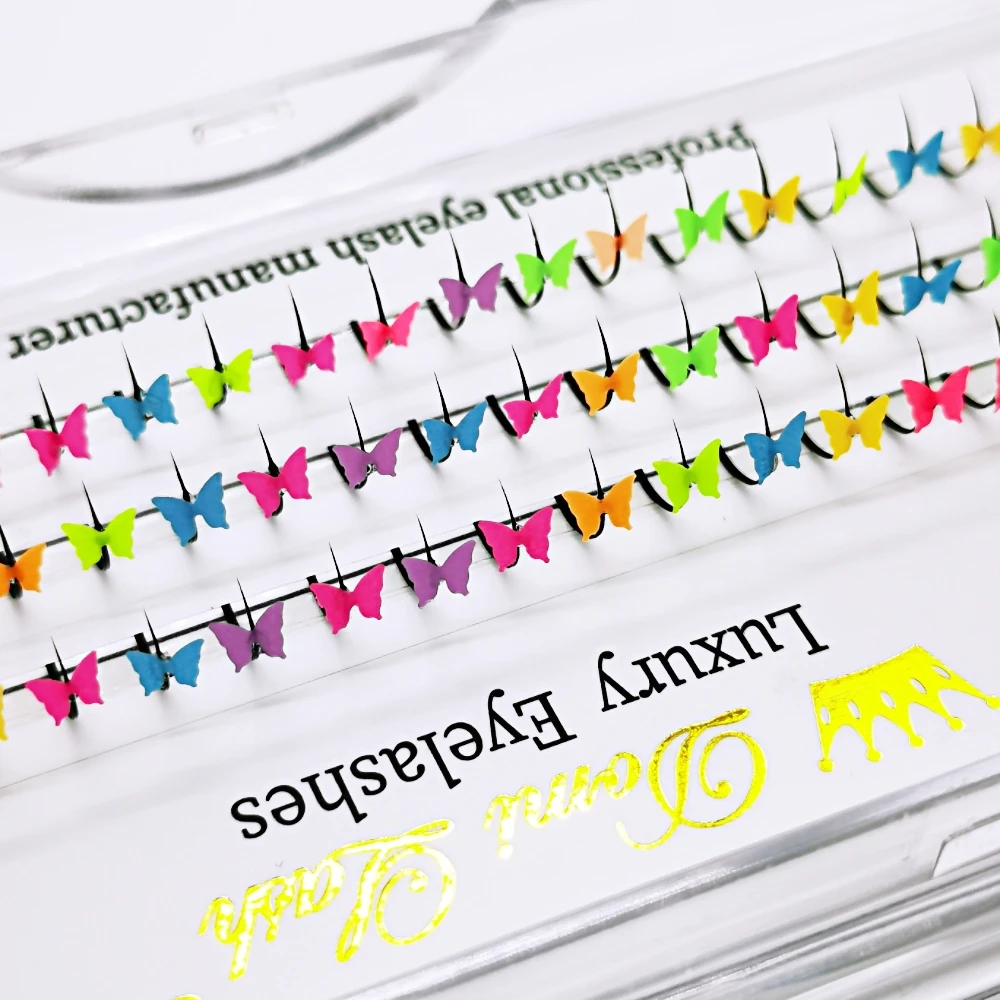 Domi Lash
Luxury Eyelashes
Professional eyelash manufacturer